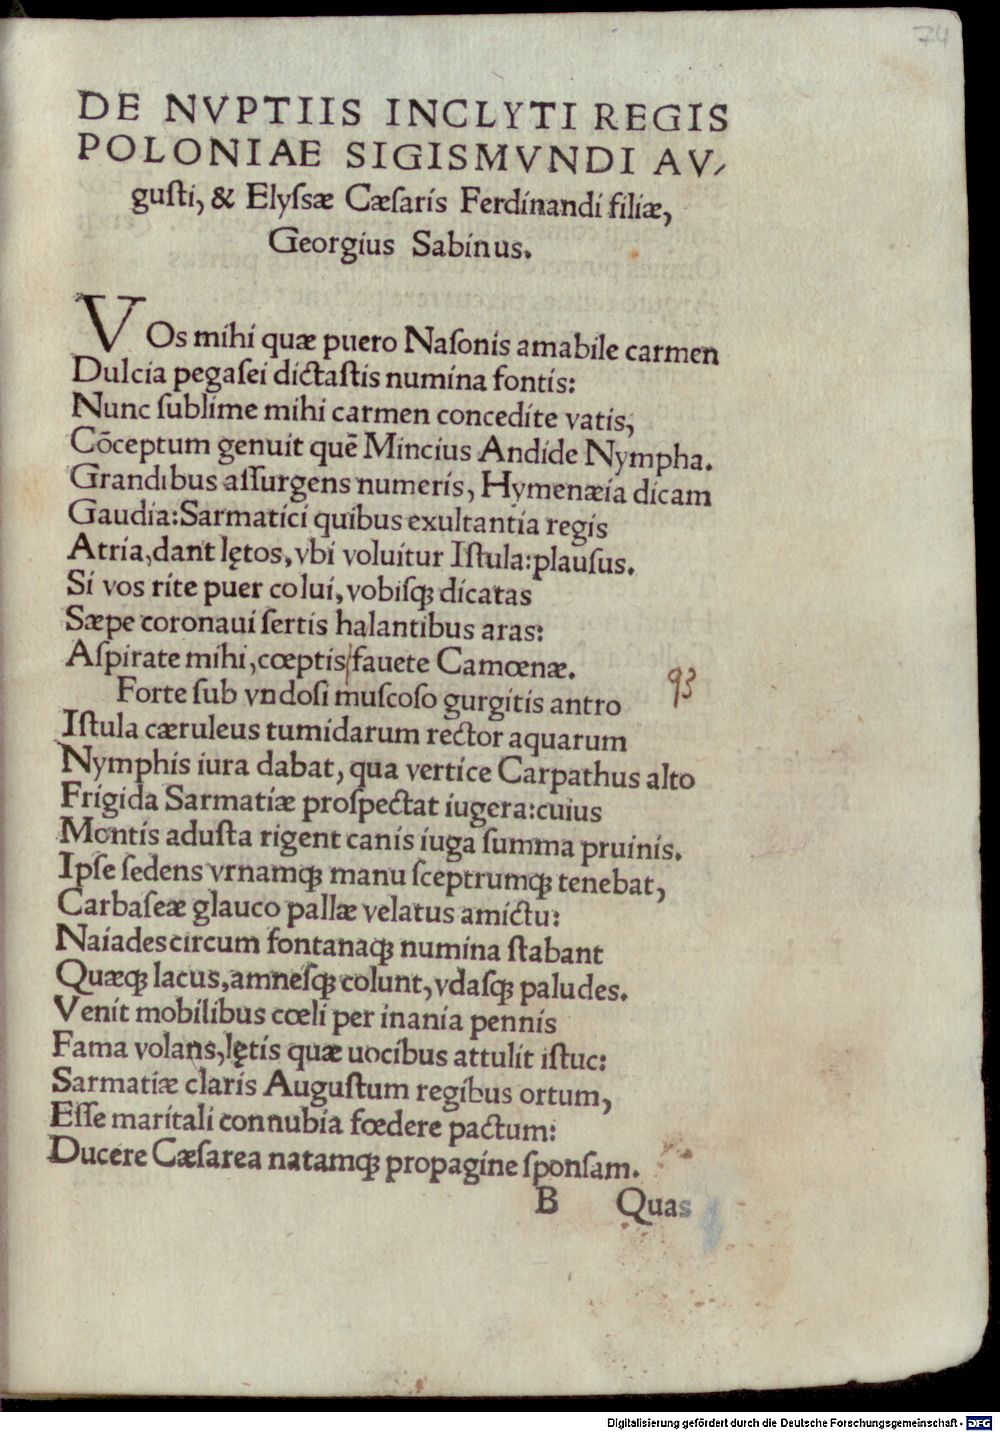 74
DE NVPTIIS INCLYTI REGIS
POLONIAE SIGISMVNDI AV⸗
guſti, & Elyſsæ Cæſaris Ferdinandi filiæ,
Georgius Sabinus.
VOs mihi quæ puero Naſonis amabile carmen
Dulcia pegaſei dictaſtis numina fontis:
Nunc ſublime mihi carmen concedite vatis,
Cōceptum genuit quē Mincius Andide Nympha.
Grandibus aſſurgens numeris, Hymenæia dicam
Gaudia: Sarmatici quibus exultantia regis
Atria, dant lętos, vbi voluitur Iſtula: plauſus.
Si vos rite puer colui, vobiſq; dicatas
Sæpe coronaui ſertis halantibus aras:
Aſpirate mihi, cœptis fauete Camœnæ.
Forte ſub vndoſi muſcoſo gurgitis antro
93
Iſtula cæruleus tumidarum rector aquarum
Nymphis iura dabat, qua vertice Carpathus alto
Frigida Sarmatiæ proſpectat iugera: cuius
Montis aduſta rigent canis iuga ſumma pruinis.
Ipſe ſedens vrnamq; manu ſceptrumq; tenebat,
Carbaſeæ glauco pallæ velatus amictu:
Naiades circum fontanaq; numina ſtabant
Quæq; lacus, amneſq; colunt, vdaſq; paludes.
Venit mobilibus cœli per inania pennis
Fama volans, lętis quæ uocibus attulit iſtuc:
Sarmatiæ claris Auguſtum regibus ortum,
Eſſe maritali connubia fœdere pactum:
Ducere Cæſarea natamq; propagine ſponſam.
B Quas
Digitalisierung gefördert durch die Deutsche Forschungsgemeinschaft - DFG